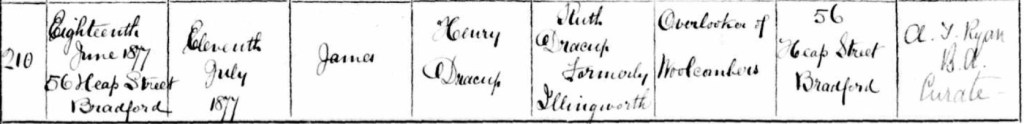 210
Eighteenth
June 1877
56 Heap Street
Bradford
Eleventh
July
1877
James
Henry
Dracup
Ruth
Dracup
Formerly
Illingworth
Overlooker of
Woolcombers
56
Heap Street
Bradford
A. T. Ryan
B.A.
Curate